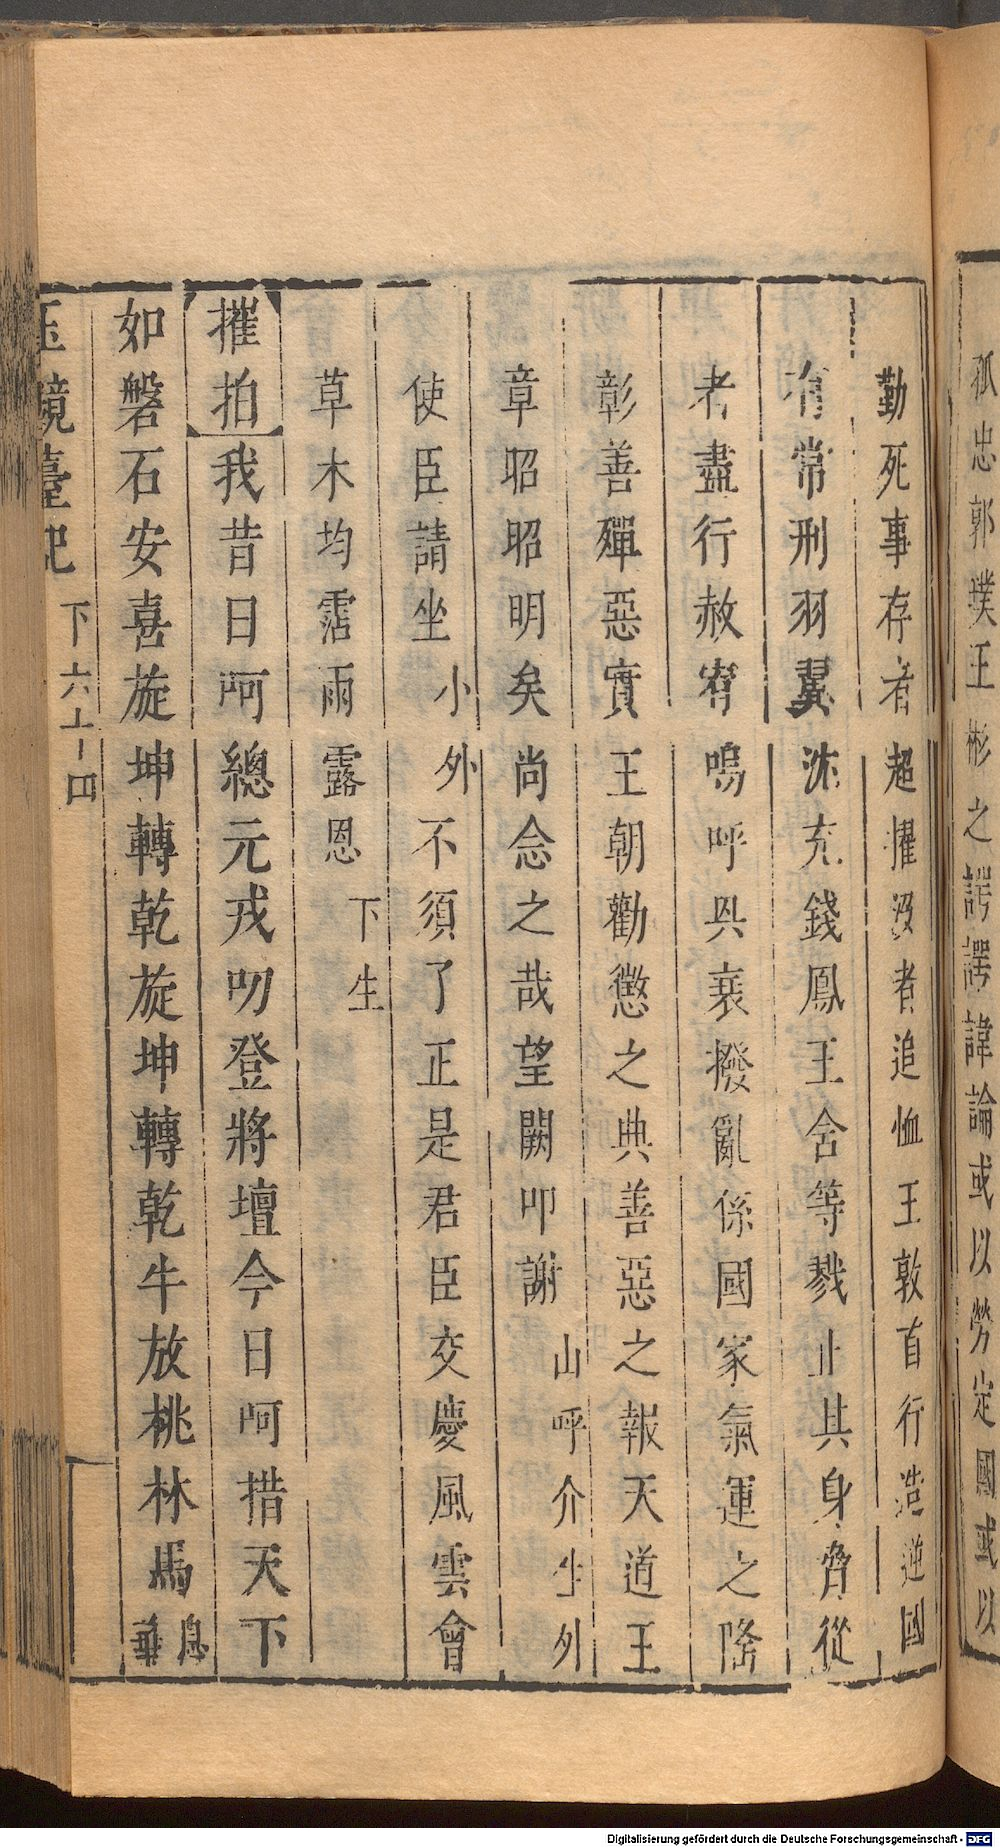 孤忠郭璞王彬之諤諤諱論或以勞定國或以
勤死事存者超擢歿者追恤王敦首行造逆國
有常刑羽翼沈充錢鳳王含等戮止其身脅從
者盡行赦宥嗚呼興衰撥亂係國家氣運之隆
彰善殫惡實王朝勸懲之典善惡之報天道王
章昭昭明矣尚念之哉望闕叩謝山呼介生外
使臣請坐小外不須了正是君臣交慶風雲會
草木均霑雨露恩下生
摧拍我昔日呵總元戎叨登將壇今日呵措天下
如磐石安喜旋坤轉乾旋坤轉乾牛放桃林馬息華
玉鏡臺記 下 六十四
Digitalisierung gefördert durch die Deutsche Forschungsgemeinschaft - DFG